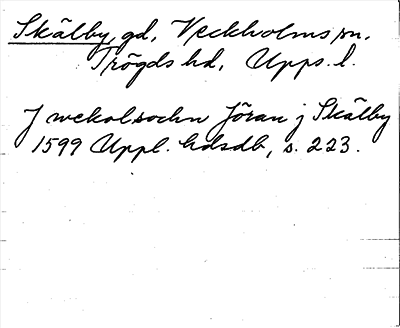 Skälby, gd, Veckholms sn,
Trögds hd, Upps. l.
J wekolsochn Jöran j Skälby
1599 Uppl. hdsdb, s. 223.